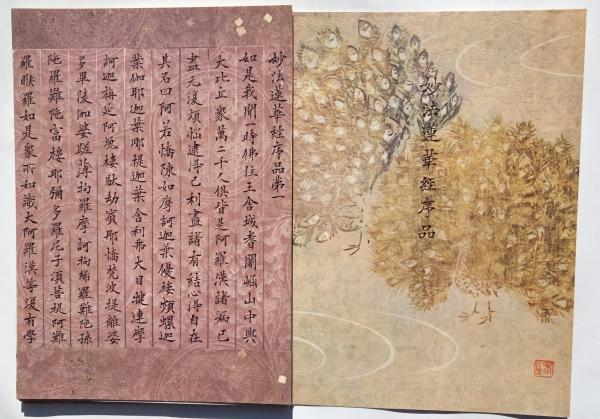 妙法蓮華經序品
妙法蓮華經序品第一
如是我聞一時佛住王舍城耆闍崛山中與
大比丘衆萬二千人俱皆是阿羅漢諸漏已
盡无復煩惱逮得己利盡諸有結心得自在
其名曰阿若憍陳如摩訶迦葉優樓頻螺迦
葉伽耶迦葉那提迦葉舍利弗大目揵連摩
訶迦旃延阿㝹樓馱劫賓那憍梵波提離婆
多畢陵伽婆蹉薄拘羅摩訶拘絺羅難陀孫
陀羅難陀富樓那彌多羅尼子須菩提阿難
羅睺羅如是衆所知識大阿羅漢等復有學